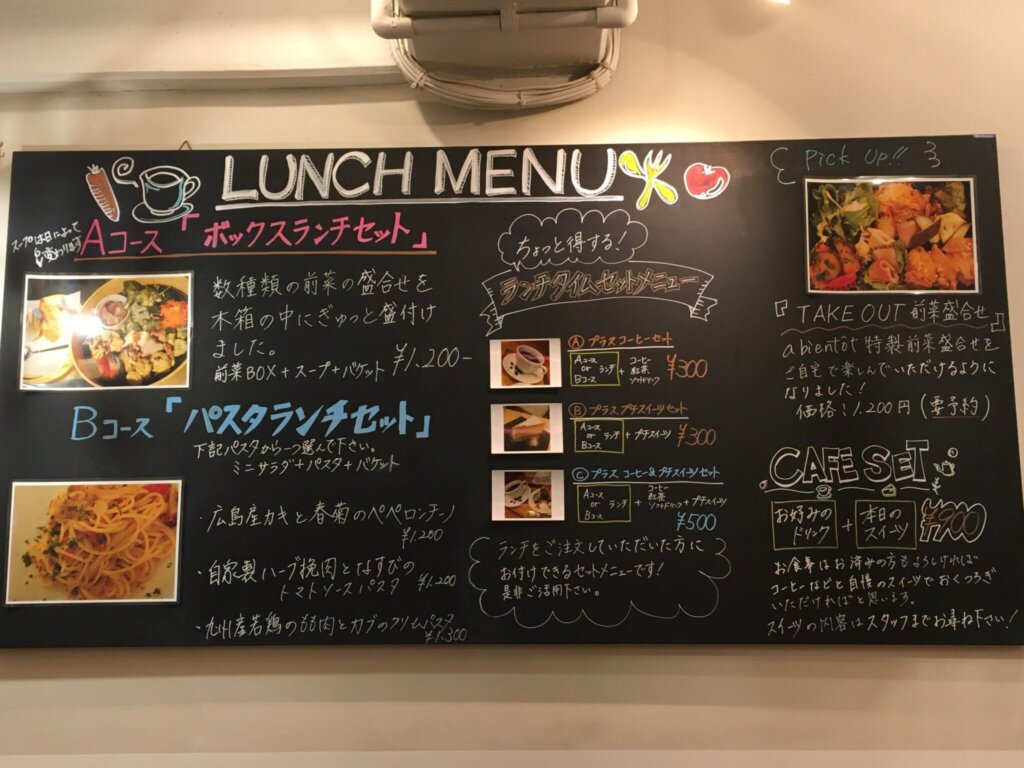 LUNCH MENU
スープは日によって
変わります
Aコース「ボックスランチセット」
数種類の前菜の盛合せを
木箱の中にぎゅっと盛付け
ました。
前菜BOX+スープ+バケット ¥1,200-
Bコース「パスタランチセット」
下記パスタから一つ選んで下さい。
ミニサラダ+パスタ+バケット
・広島産カキと春菊のペペロンチーノ
¥1,200
・自家製ハーブ挽肉となすびの
トマトソースパスタ ¥1,200
・九州産若鶏のもも肉とカブのクリームパスタ
¥1,300
ちょっと得する!
ランチタイムセットメニュー
Ⓐ プラスコーヒーセット
Aコース
or ランチ
Bコース
+
コーヒー
紅茶
ソフトドリンク
¥300
Ⓑ プラスプチスイーツセット
Aコース
or ランチ
Bコース
+ プチスイーツ
¥300
Ⓒ プラスコーヒー&プチスイーツセット
Aコース
or ランチ
Bコース
+
コーヒー
紅茶
ソフトドリンク + プチスイーツ
¥500
ランチをご注文していただいた方に
お付けできるセットメニューです!
是非ご活用下さい。
Pick Up!!
『TAKE OUT 前菜盛合せ』
a bientôt 特製前菜盛合せを
ご自宅で楽しんでいただけるように
なりました!
価格:1,200円(要予約)
CAFE SET
お好みの
ドリンク
+
本日の
スイーツ
¥900
お食事はお済みの方もよろしければ
コーヒーなどと自慢のスイーツでおくつろぎ
いただければと思います。
スイーツの内容はスタッフまでお尋ね下さい!